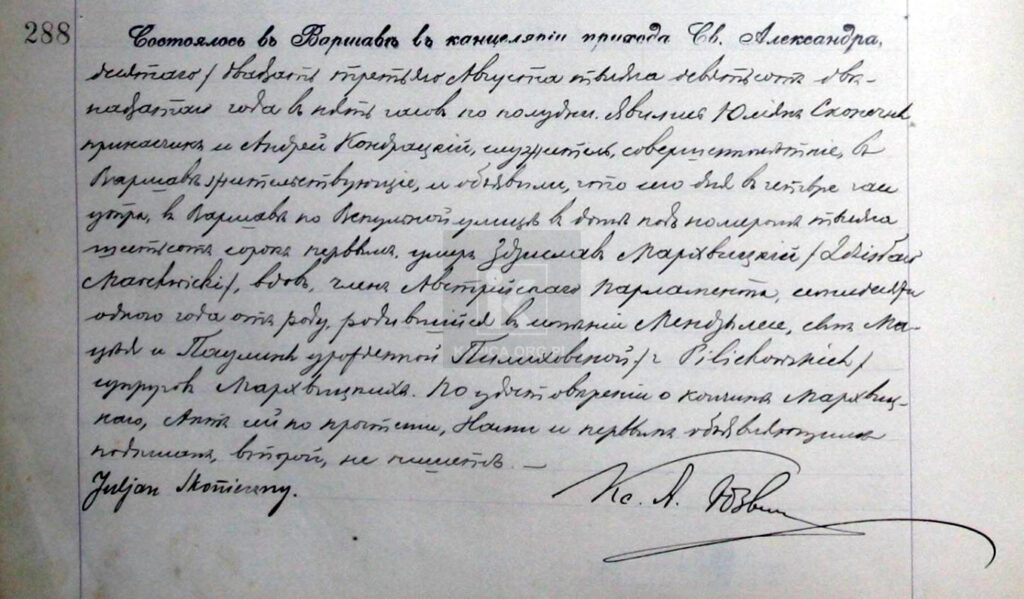 288
Состоялось въ Варшавѣ въ канцеляріи прихода Св. Александра,
десятаго / двадцать третьяго Августа тысяча девятьсотъ два-
надцатаго года въ пять часовъ по полудни. Явились Юліянъ Сконечный
приказчикъ и Андрей Кондрацкій, служитель, совершеннолѣтніе, въ
Варшавѣ жительствующіе, и объявили, что сего дня въ четыре часа
утра, въ Варшавѣ по Вспульной улицѣ въ домѣ подъ номеромъ тысяча
шестьсотъ сорокъ первымъ, умеръ Здзиславъ Мархвицкій / Zdzisław
Marchwicki /, вдовъ, членъ Австрійскаго Парламента, семидесяти
одного года отъ роду, родившійся въ имѣніи сынъ Ма-
цѣя и Паулины урожденной Пилиховской / z Pilichowskich /
супруговъ Мархвицкихъ. По удостовѣреніи о кончинѣ Мархвиц-
каго, Актъ сей по прочтеніи, Нами и первымъ объявляющимъ
подписанъ, второй, не пишетъ. —
Juljan Skonieczny.
Кс. А.
KSIĘGA.ORG.PL